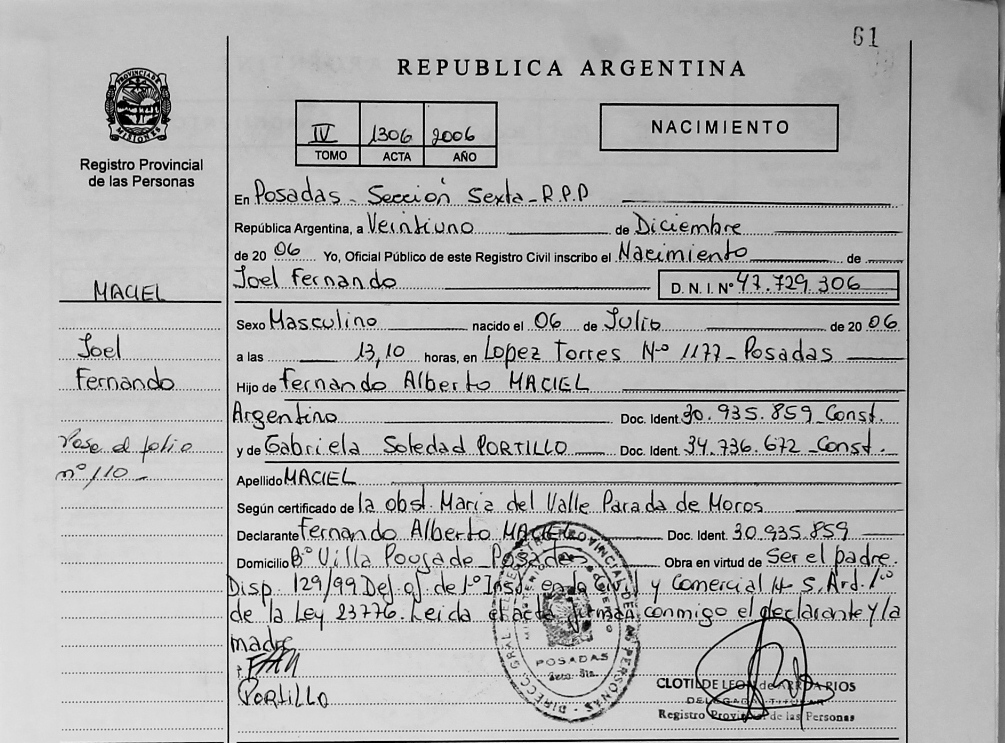 61
REPUBLICA ARGENTINA
PROVINCIA DE MISIONES
Registro Provincial
de las Personas
IV 1306 2006
TOMO ACTA AÑO
NACIMIENTO
En Posadas - Sección Sexta - R.P.P
República Argentina, a Veintiuno de Diciembre
de 20 06 Yo, Oficial Público de este Registro Civil inscribo el Nacimiento de
Joel Fernando D. N. I. N° 47.729.306
MACIEL
Joel
Fernando
Pase al folio
nº 110
Sexo Masculino nacido el 06 de Julio de 20 06
a las 13,10 horas, en Lopez Torres Nº 1177 - Posadas
Hijo de Fernando Alberto MACIEL
Argentino Doc. Ident. 30.935.859 Const.
y de Gabriela Soledad PORTILLO Doc. Ident. 34.736.672 Const.
Apellido MACIEL
Según certificado de la obst. María del Valle Parada de Moros
Declarante Fernando Alberto MACIEL Doc. Ident. 30.935.859
Domicilio Bº Villa Pousade Posadas Obra en virtud de Ser el padre.
Disp. 129/99 Del of. de 1º Inst. en lo y Comercial
de la Ley 23776. Leida el acta firman conmigo el declarante y la
madre
PORTILLO
DIRECC. GRAL. DEL REGISTRO PROVINCIAL DE LAS PERSONAS
POSADAS
CLOTILDE LEON de ARRUA RIOS
DELEGADA TITULAR
Registro Provincial de las Personas